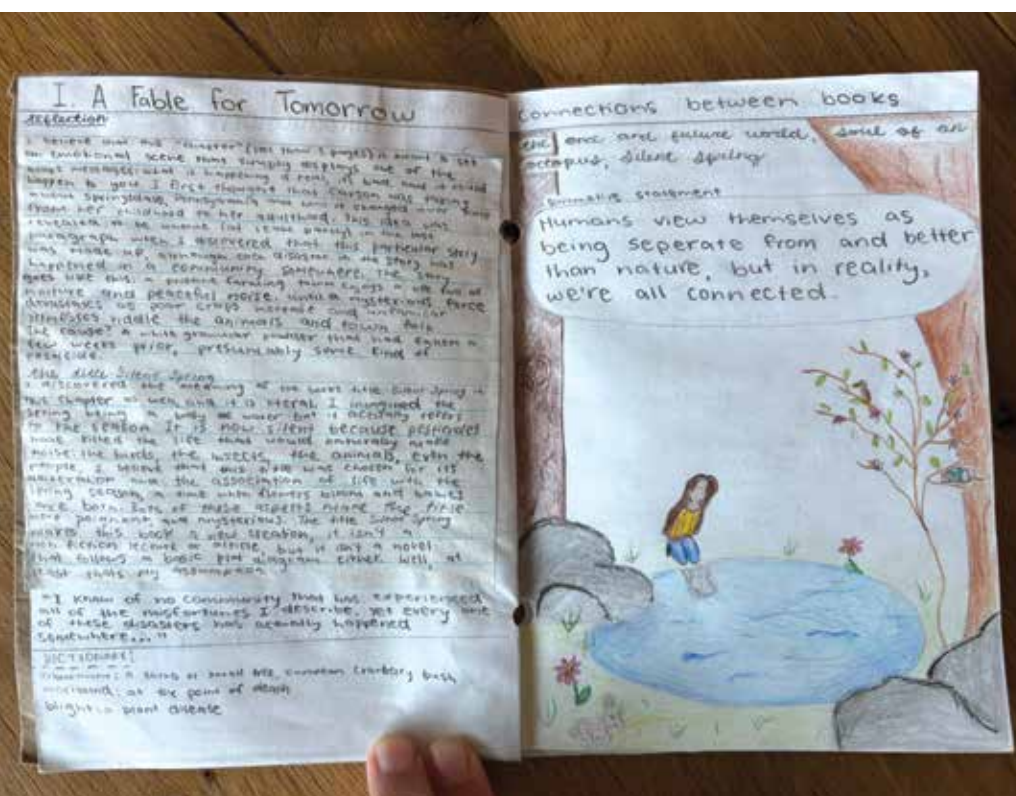 I. A Fable for Tomorrow
reflection
I believe that this "chapter" (less than 3 pages) is meant to set
an emotional scene that simply displays one of the
book's messages: what is happening is real, is bad, and it could
happen to you. I first thought that Carson was talking
about Springdale, Pennsylvania and how it changed over time
from her childhood to her adulthood. This idea was
revealed to be untrue (at least partly) in the last
paragraph when I discovered that this particular story
was made up, although each disaster in the story was
happened in a community somewhere. The story
goes like this: a positive farming town enjoys a life full of
nature and peaceful noise, until a mysterious force
as poor crops increase and unfamiliar
illnesses riddle the animals and town folk.
The cause? A white granular powder that had fallen a
few weeks prior, presumably some kind of
pesticide.
the title Silent Spring
I discovered the meaning of the book's title Silent Spring in
this chapter as well, and it is literal. I imagined the
spring being a body of water but it actually refers
to the season. It is now silent because pesticides
have killed the life that would naturally make
noise: the birds, the insects, the animals, even the
people. I believe that this title was chosen for its
alliteration and the association of life with the
spring season, a time when flowers bloom and babies
are born. Both of these aspects make the title
more poignant and mysterious. The title Silent Spring
makes this book a new creation, it isn't a
non fiction lecture or article, but it isn't a novel
that follows a basic plot diagram either. Well, at
least thats my assumption.
"I know of no community that has experienced
all of the misfortunes I describe, yet every one
of these disasters has actually happened
somewhere..."
DICTIONARY:
a shrub or small tree, cranbery bush
moribund: at the point of death
blight: a plant disease
connections between books
the once and future world, soul of an
octopus, silent spring
thematic statement
Humans view themselves as
being seperate from and better
than nature, but in reality,
we're all connected.